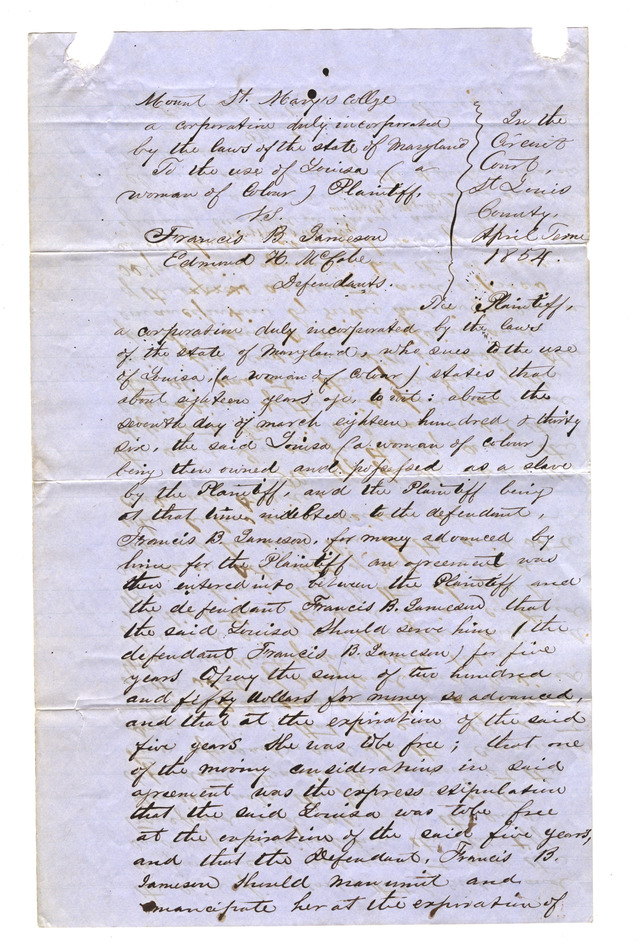 Mount St. Mary's Collge
a corporation duly incorporated
by the laws of the state of Maryland
To the use of Louisa (a
woman of Colour) Plaintiff.
Vs.
Francis B. Jameson
Edmond H. McCabe
Defendants
In the
Circuit
Court,
St Louis
County,
April Term
1854.
The Plaintiff,
a corporation duly incorporated by the laws
of the state of Maryland, who sues to the use
of Louisa, (a woman of colour) states that
about eighteen years ago, to wit: about the
seventh day of march eighteen hundred & thirty
six, the said Louisa (a woman of colour)
being then owned and possessed as a slave
by the Plaintiff, and the Plaintiff being
at that time indebted to the defendant,
Francis B. Jameson, for money advanced by
him for the Plaintiff an agreement was
then entered into between the Plaintiff and
the defendant Francis B. Jameson that
the said Louisa should serve him (the
defendant Francis B. Jameson) for five
years to pay the sum of two hundred
and fifty dollars for money so advanced,
and that at the expiration of the said
five years she was to be free; that one
of the moving considerations in said
agreement was the express stipulation
that the said Louisa was to be free
at the expiration of the said five years,
and that the Defendant, Francis B.
Jameson should manumit and
emancipate her at the expiration of